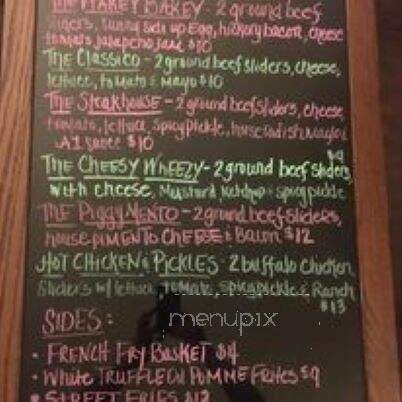 THE WAKEY BAKEY - 2 ground beef
sliders, Sunny side up Egg, hickory bacon, cheese
tomato jalapeño jam $10
THE CLASSICO - 2 ground beef sliders, cheese,
lettuce, tomato & mayo $10
THE Steakhouse - 2 ground beef sliders, cheese,
tomato, lettuce, spicy pickle, horseradish mayo &
A1 sauce $10
$9
THE CHEESY WHEEZY - 2 ground beef sliders
with cheese, Mustard, Ketchup & spicy pickle
THE PIGGY MENTO - 2 ground beef sliders,
house PIMENTO CHEESE & Bacon $12
HOT CHICKEN & PICKLES - 2 buffalo chicken
Sliders w/ lettuce, TOMATO, SPICY PICKLE & Ranch
$13
menupix
SIDES:
• FRENCH FRY BASKET $4
• White TRUFFLE OIL POMME Frites $9
• STREET FRIES $12